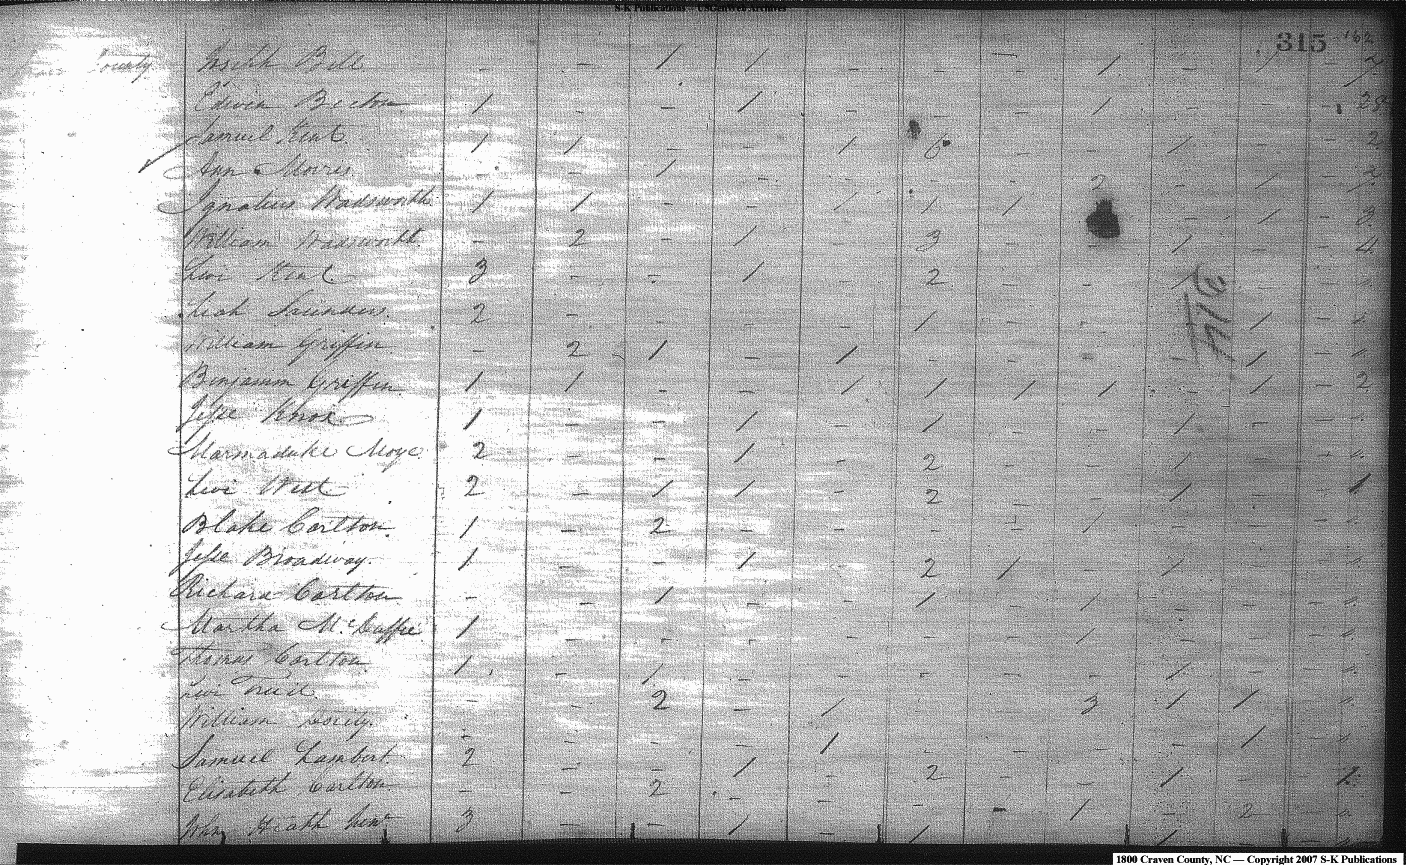 S-K Publications - USGenWeb Archives
315 162
County Joseph Bell - - / / - - - / - / - 2
Edwin Becton 1 - - / - - - / - - - 28
Samuel Kent 1 / - - / 6 - - / - - 2
Ann Morris - - / - - - - 2 - / - 2
Ignatius Wadsworth 1 / - - / / / - / - 3
William Wadsworth - 2 - / - 3 - - / - - 4
Levi Kent 3 - - / - 2 - - / - -
Leah Saunders 2 - - - - / - - - / -
William Griffin - 2 / - / - - - - / -
Benjamin Griffin 1 / - - / / / / - / - 2
Jesse Knox 1 - - / - / - - / - -
Marmaduke Moye 2 - - / - 2 - - / - -
Levi West 2 - / / - 2 - - / - - 1
Blake Carlton 1 - 2 - - - - / - - -
Jesse Broadway 1 - - / - 2 / - / - -
Richard Carlton - - / - - / - / - - -
Martha McDaffie 1 - - - - - - / - - -
Thomas Carlton 1 - / - - - - - / - -
Levi Truit - - 2 - / - - 3 / / -
William - - - - / - - - - / -
Samuel Lambert 2 - - / - 2 - - / - -
Elisabeth Carlton - - 2 - - - - / - 2 -
John Heath Senr 3 - - / - / - - / - -
416
1800 Craven County, NC — Copyright 2007 S-K Publications